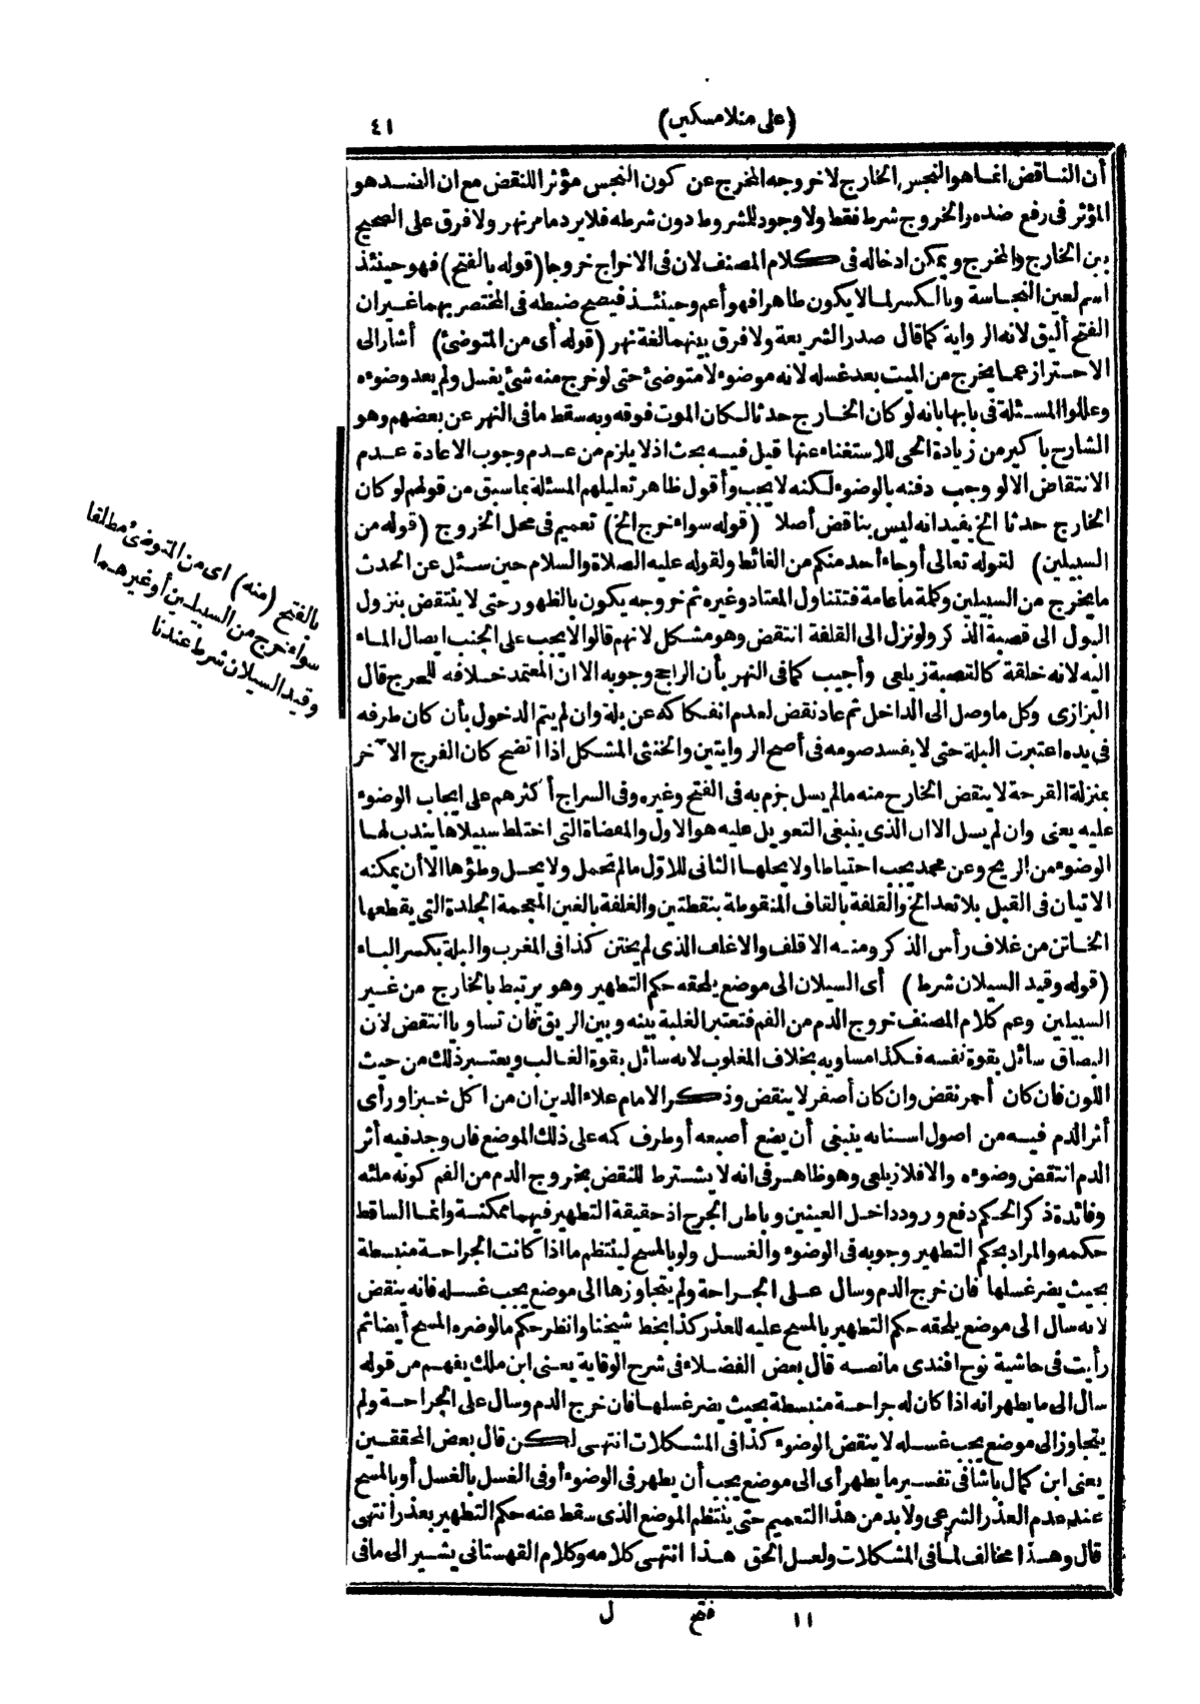 (على منلا مسكين) ٤١
أن الناقض انما هو النجس الخارج لا خروجه المخرج عن كون النجس مؤثرا للنقض مع ان الضد هو
المؤثر فى رفع ضده والخروج شرط فقط ولا وجود للمشروط دون شرطه فلا يرد ما مر نهر ولا فرق على الصحيح
بين الخارج والمخرج ويمكن ادخاله فى كلام المصنف لان فى الاخراج خروجا (قوله بالفتح) فهو حينئذ
اسم لعين النجاسة وبالكسر لما لا يكون طاهرا فهو أعم وحينئذ فيصح ضبطه فى المختصر بهما غير ان
الفتح أليق لانه الرواية كما قال صدر الشريعة ولا فرق بينهما لغة نهر (قوله أى من المتوضئ) أشار الى
الاحتراز عما يخرج من الميت بعد غسله لانه موضوء لا متوضئ حتى لو خرج منه شئ يغسل ولم يعد وضوءه
وعللوا المسئلة فى بابها بانه لو كان الخارج حدثا لكان الموت فوقه وبه سقط ما فى النهر عن بعضهم وهو
الشارح باكير من زيادة الحى للاستغناء عنها قيل فيه بحث اذ لا يلزم من عدم وجوب الاعادة عدم
الانتقاض الا لو وجب دفنه بالوضوء لكنه لا يجب وأقول ظاهر تعليلهم المسئلة بما سبق من قولهم لو كان
الخارج حدثا الخ يفيد انه ليس بناقض أصلا (قوله سواء خرج الخ) تعميم فى محل الخروج (قوله من
السبيلين) لقوله تعالى أو جاء أحد منكم من الغائط ولقوله عليه الصلاة والسلام حين سئل عن الحدث
ما يخرج من السبيلين وكلمة ما عامة فتتناول المعتاد وغيره ثم خروجه يكون بالظهور حتى لا ينتقض بنزول
البول الى قصبة الذكر ولو نزل الى القلفة انتقض وهو مشكل لانهم قالوا لا يجب على الجنب ايصال الماء
اليه لانه خلقة كالقصبة زيلعى وأجيب كما فى النهر بأن الراجح وجوبه الا ان المعتمد خلافه للحرج قال
البزازى وكل ما وصل الى الداخل ثم عاد نقض لعدم انفكاكه عن بلة وان لم يتم الدخول بأن كان طرفه
فى يده اعتبرت البلة حتى لا يفسد صومه فى أصح الروايتين والخنثى المشكل اذا اتضح كان الفرج الآخر
بمنزلة القرحة لا ينقض الخارج منه ما لم يسل جزم به فى الفتح وغيره وفى السراج أكثرهم على ايجاب الوضوء
عليه يعنى وان لم يسل الا ان الذى ينبغى التعويل عليه هو الاول والمفضاة التى اختلط سبيلاها يندب لها
الوضوء من الريح وعن محمد يجب احتياطا ولا يحلها الثانى للاوّل ما لم تحمل ولا يحل وطؤها الا أن يمكنه
الاتيان فى القبل بلا تعد الخ والقلفة بالقاف المنقوطة بنقطتين والغلفة بالغين المعجمة الجلدة التى يقطعها
الخاتن من غلاف رأس الذكر ومنه الاقلف والاغلف الذى لم يختن كذا فى المغرب والبلة بكسر الباء
(قوله وقيد السيلان شرط) أى السيلان الى موضع يلحقه حكم التطهير وهو يرتبط بالخارج من غير
السبيلين وعم كلام المصنف خروج الدم من الفم فتعتبر الغلبة بينه وبين الريق فان تساويا انتقض لان
البصاق سائل بقوة نفسه فكذا مساويه بخلاف المغلوب لانه سائل بقوة الغالب ويعتبر ذلك من حيث
اللون فان كان أحمر نقض وان كان أصفر لا ينقض وذكر الامام علاء الدين ان من اكل خبزا ورأى
أثر الدم فيه من اصول اسنانه ينبغى أن يضع أصبعه أو طرف كمه على ذلك الموضع فان وجد فيه أثر
الدم انتقض وضوءه والا فلا زيلعى وهو ظاهر فى انه لا يشترط للنقض بخروج الدم من الفم كونه ملئه
وفائدة ذكر الحكم دفع ورود داخل العينين وباطن الجرح اذ حقيقة التطهير فيهما ممكنة وانما الساقط
حكمه والمراد بحكم التطهير وجوبه فى الوضوء والغسل ولو بالمسح لينتظم ما اذا كانت الجراحة منبسطة
بحيث يضر غسلها فان خرج الدم وسال على الجراحة ولم يتجاوزها الى موضع يجب غسله فانه ينقض
لانه سال الى موضع يلحقه حكم التطهير بالمسح عليه للعذر كذا بخط شيخنا وانظر حكم ما لو ضره المسح أيضا ثم
رأيت فى حاشية نوح افندى ما نصه قال بعض الفضلاء فى شرح الوقاية يعنى ابن ملك يفهم من قوله
سال الى ما يطهر انه اذا كان له جراحة منبسطة بحيث يضر غسلها فان خرج الدم وسال على الجراحة ولم
يتجاوز الى موضع يجب غسله لا ينقض الوضوء كذا فى المشكلات انتهى لكن قال بعض المحققين
يعنى ابن كمال باشا فى تفسير ما يطهر أى الى موضع يجب أن يطهر فى الوضوء أو فى الغسل بالغسل أو بالمسح
عند عدم العذر الشرعى ولا بد من هذا التعميم حتى ينتظم الموضع الذى سقط عنه حكم التطهير بعذر انتهى
قال وهذا مخالف لما فى المشكلات ولعل الحق هذا انتهى كلامه وكلام القهستانى يشير الى ما فى
بالفتح (منه) اى من المتوضئ مطلقا
سواء خرج من السبيلين أو غيرهما
وقيد السيلان شرط عندنا
١١ فتح ل